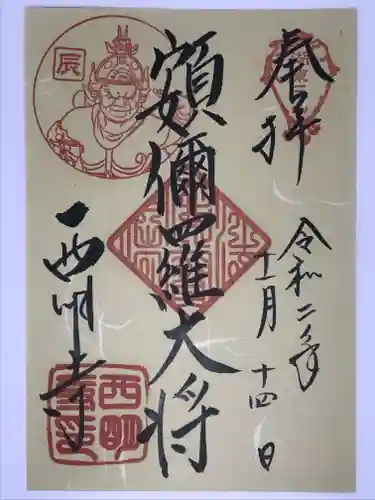 奉拝
令和二年
十一月十四日
額你羅大将
西明寺
辰
西明